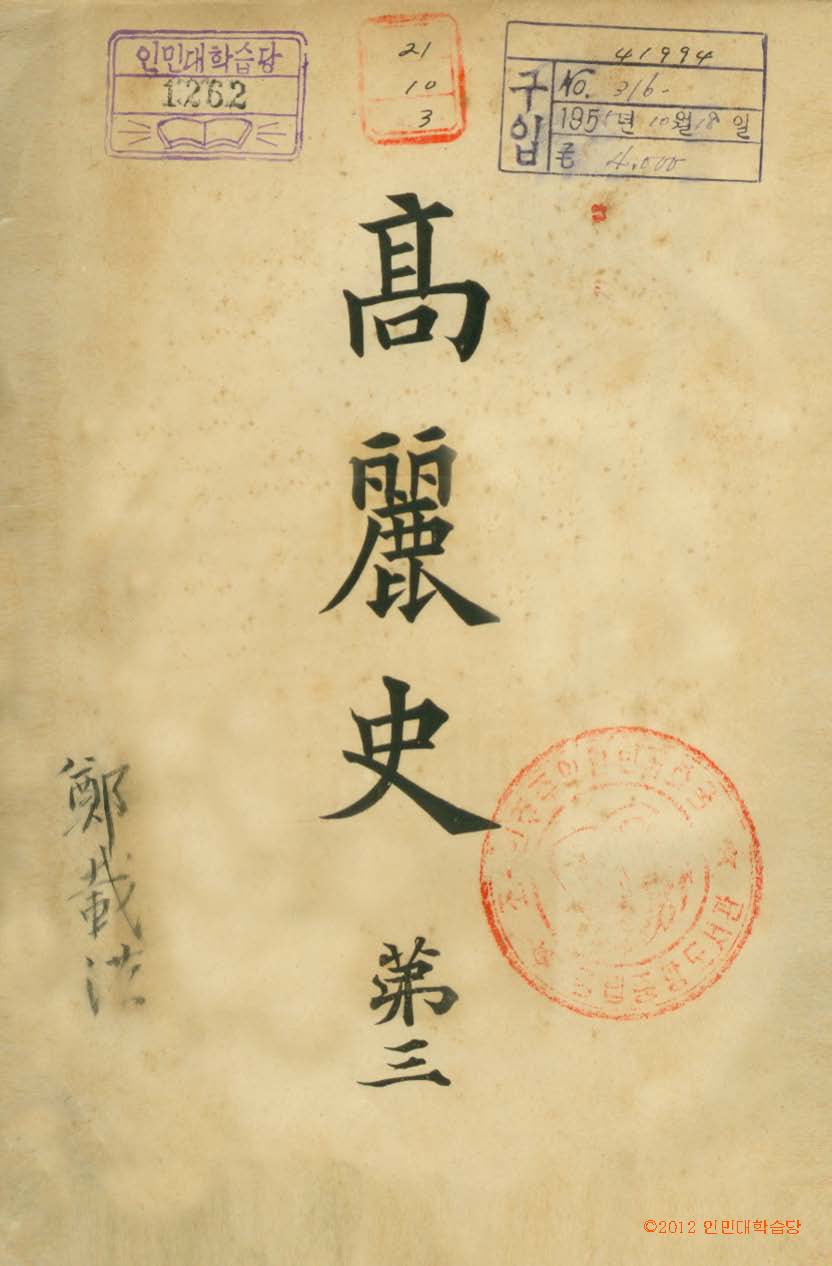 인민대학습당
1262
21
10
3
41994
구입
No. 316-
195 년 10월 18일
4.000
高麗史
第三
鄭載洪
©2012 인민대학습당